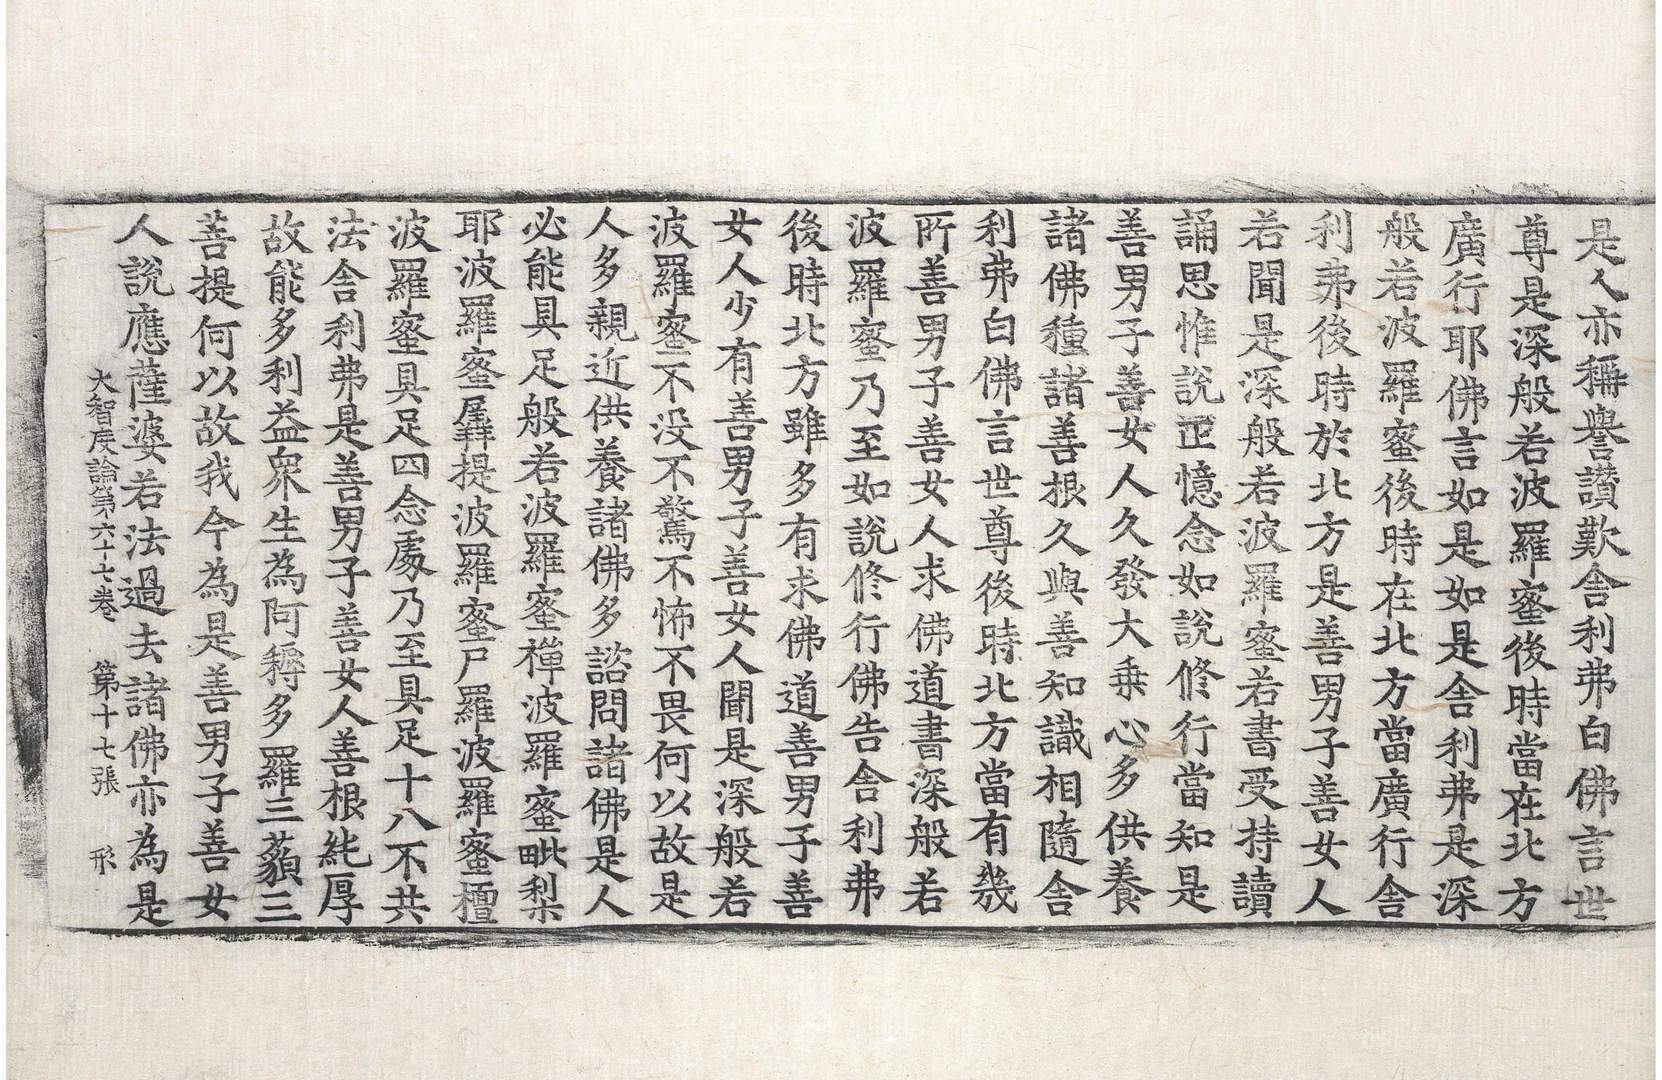 是人亦稱譽讃歎舍利弗白佛言世
尊是深般若波羅蜜後時當在北方
廣行耶佛言如是如是舍利弗是深
般若波羅蜜後時在北方當廣行舍
利弗後時於北方是善男子善女人
若聞是深般若波羅蜜若書受持讀
誦思惟說正憶念如說修行當知是
善男子善女人久發大乗心多供養
諸佛種諸善根久與善知識相隨舍
利弗白佛言世尊後時北方當有幾
所善男子善女人求佛道書深般若
波羅蜜乃至如說修行佛告舍利弗
後時北方雖多有求佛道善男子善
女人少有善男子善女人聞是深般若
波羅蜜不没不驚不怖不畏何以故是
人多親近供養諸佛多諮問諸佛是人
必能具足般若波羅蜜禪波羅蜜毗梨
耶波羅蜜羼提波羅蜜尸羅波羅蜜檀
波羅蜜具足四念處乃至具足十八不共
法舍利弗是善男子善女人善根純厚
故能多利益衆生為阿耨多羅三藐三
菩提何以故我今為是善男子善女
人說應薩婆若法過去諸佛亦為是
大智度論第六十七卷 第十七張 形